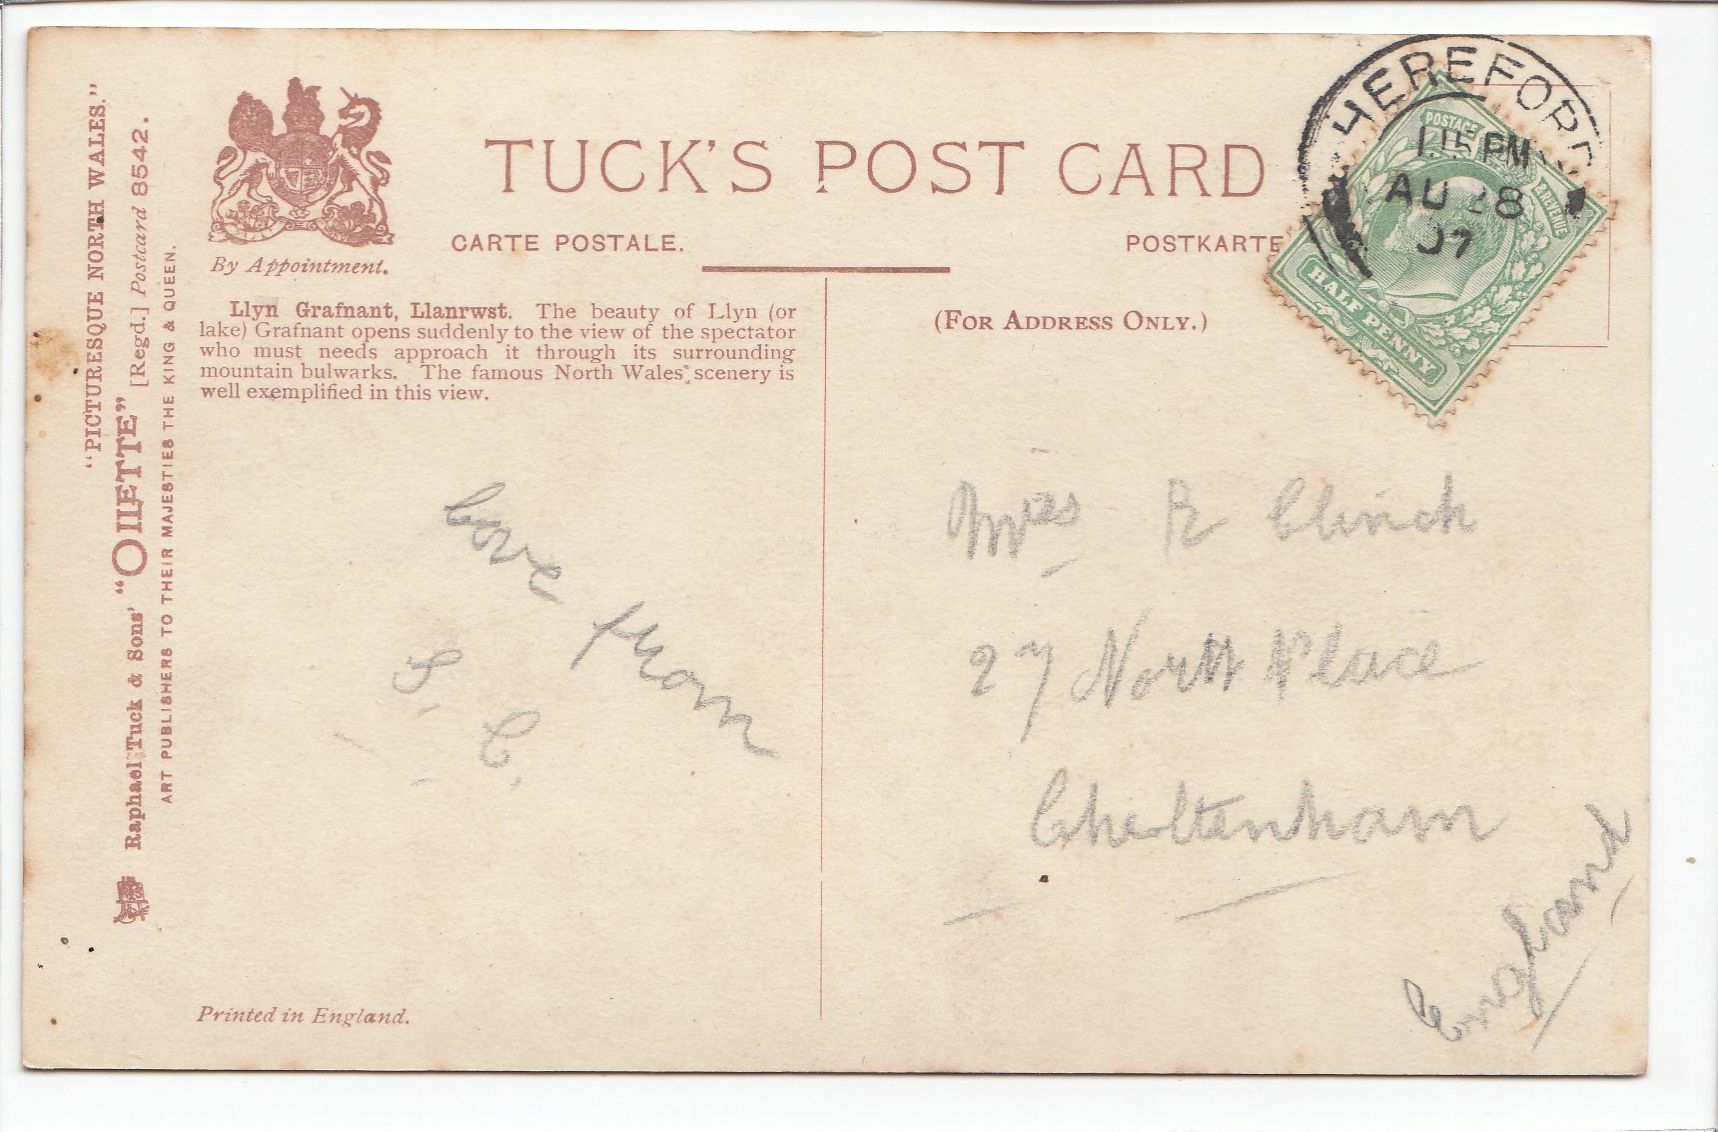 "PICTURESQUE NORTH WALES."
Raphael Tuck & Sons' "OILETTE" [Regd.] Postcard 8542.
ART PUBLISHERS TO THEIR MAJESTIES THE KING & QUEEN.
By Appointment.
TUCK'S POST CARD
CARTE POSTALE.
POSTKARTE
HEREFORD
1.15 PM
AU 28
07
POSTAGE
REVENUE
HALF PENNY
Llyn Grafnant, Llanrwst. The beauty of Llyn (or
lake) Grafnant opens suddenly to the view of the spectator
who must needs approach it through its surrounding
mountain bulwarks. The famous North Wales scenery is
well exemplified in this view.
(FOR ADDRESS ONLY.)
Love from
S. C.
R Clinch
27 North Place
Cheltenham
England
Printed in England.